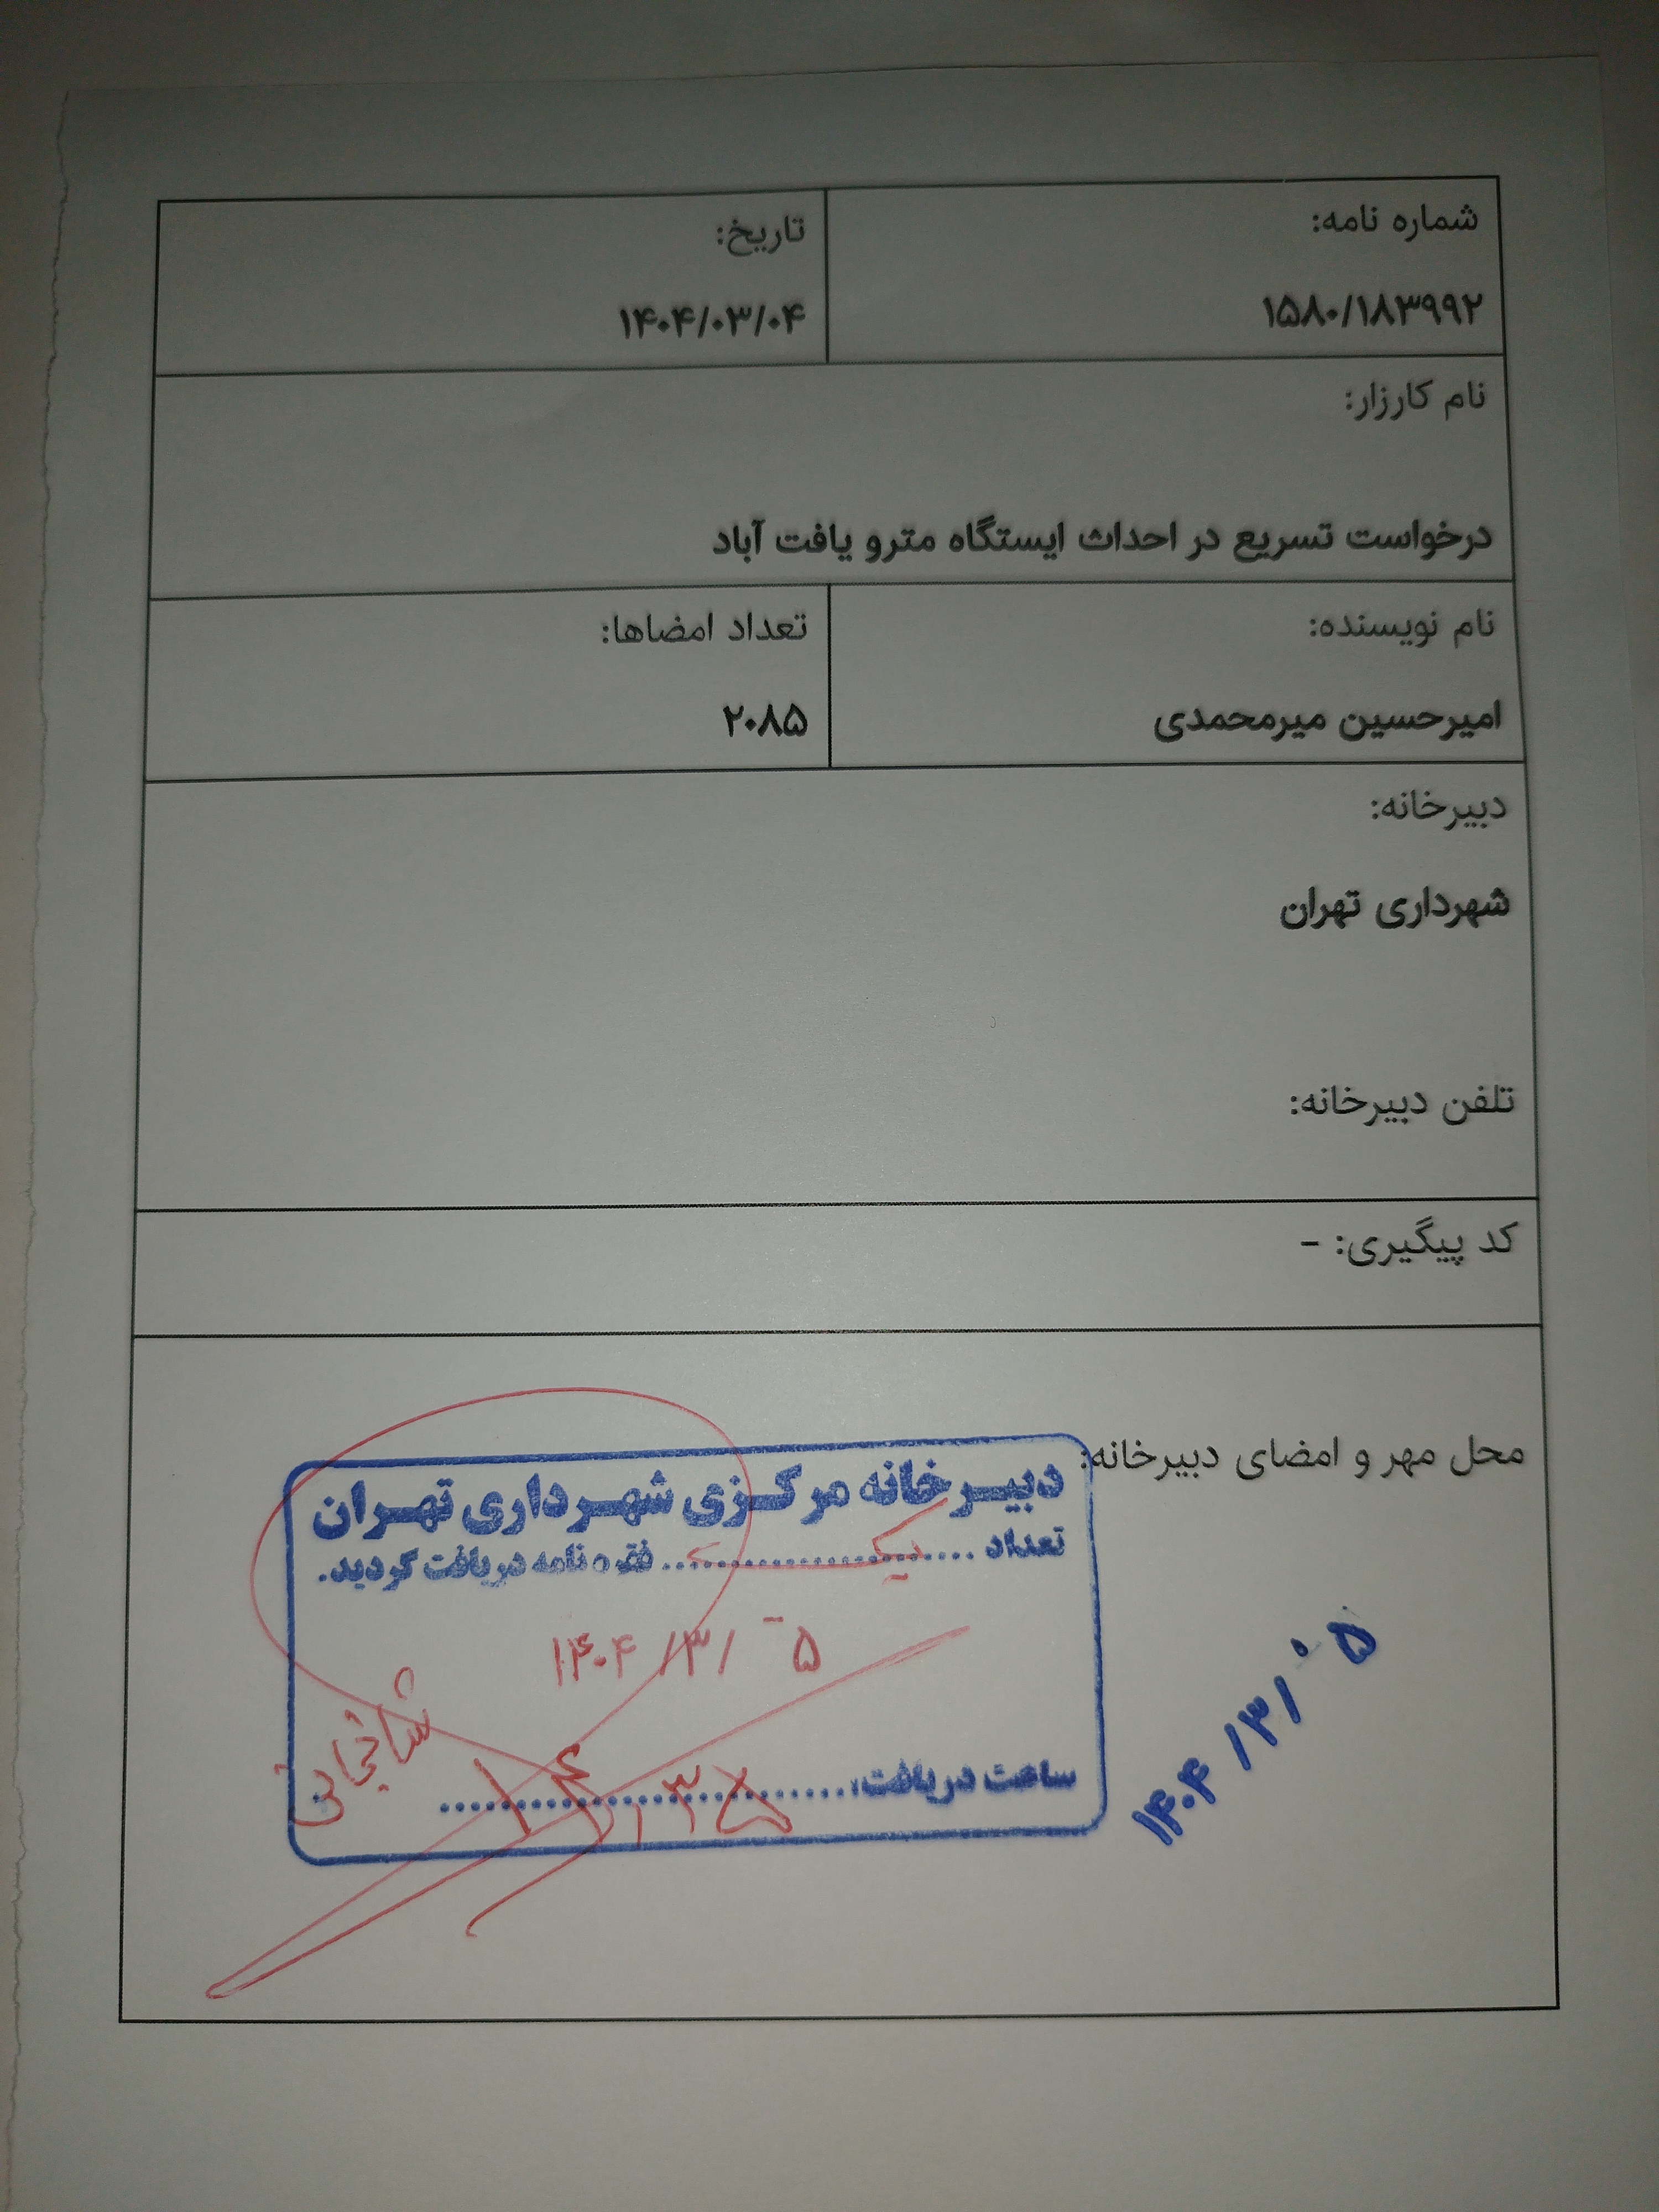 شماره نامه:
۱۵۸۰/۱۸۳۹۹۲
تاریخ:
۱۴۰۴/۰۳/۰۴
نام کارزار:
درخواست تسریع در احداث ایستگاه مترو یافت آباد
نام نویسنده:
امیرحسین میرمحمدی
تعداد امضاها:
۲۰۸۵
دبیرخانه:
شهرداری تهران
تلفن دبیرخانه:
کد پیگیری: -
محل مهر و امضای دبیرخانه:
دبیرخانه مرکزی شهرداری تهران
تعداد .......... یک .......... فقره نامه دریافت گردید.
۱۴۰۴/۳/۵
ساعت دریافت: ..........
۱۴۰۴/۳/۰۵